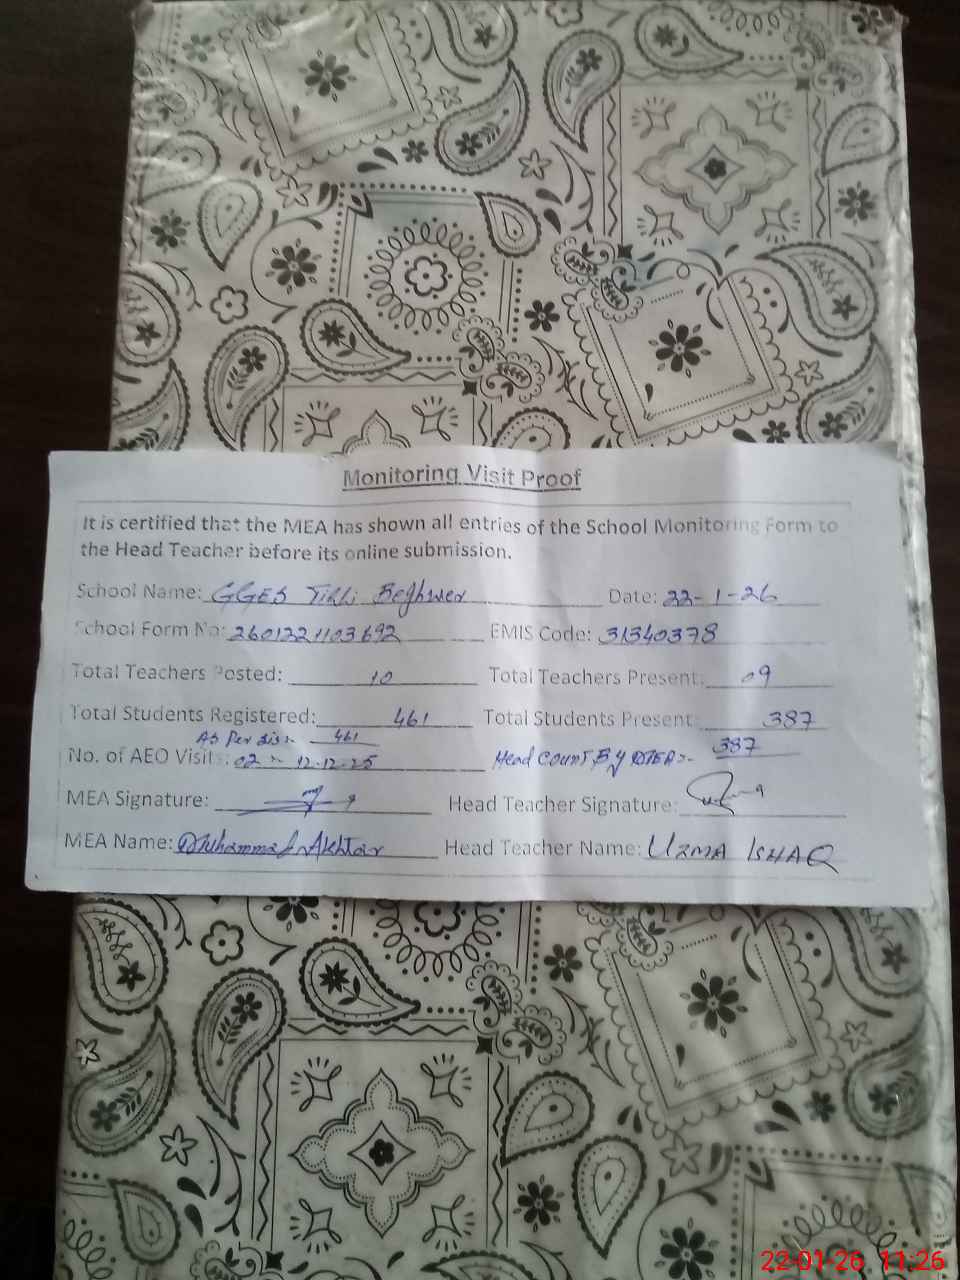 Monitoring Visit Proof
It is certified that the MEA has shown all entries of the School Monitoring Form to
the Head Teacher before its online submission.
School Name: GGES Tibbi Date: 22-1-26
School Form No: 2601221103692 EMIS Code: 31340378
Total Teachers Posted: 10 Total Teachers Present: 09
Total Students Registered: 461 Total Students Present: 387
As Per sis:- 461
No. of AEO Visits: 02 12-12-25 Head Count By MEA:- 387
MEA Signature: Head Teacher Signature:
MEA Name: Muhammad Akhtar Head Teacher Name: UZMA ISHAQ
22-01-26 11:26